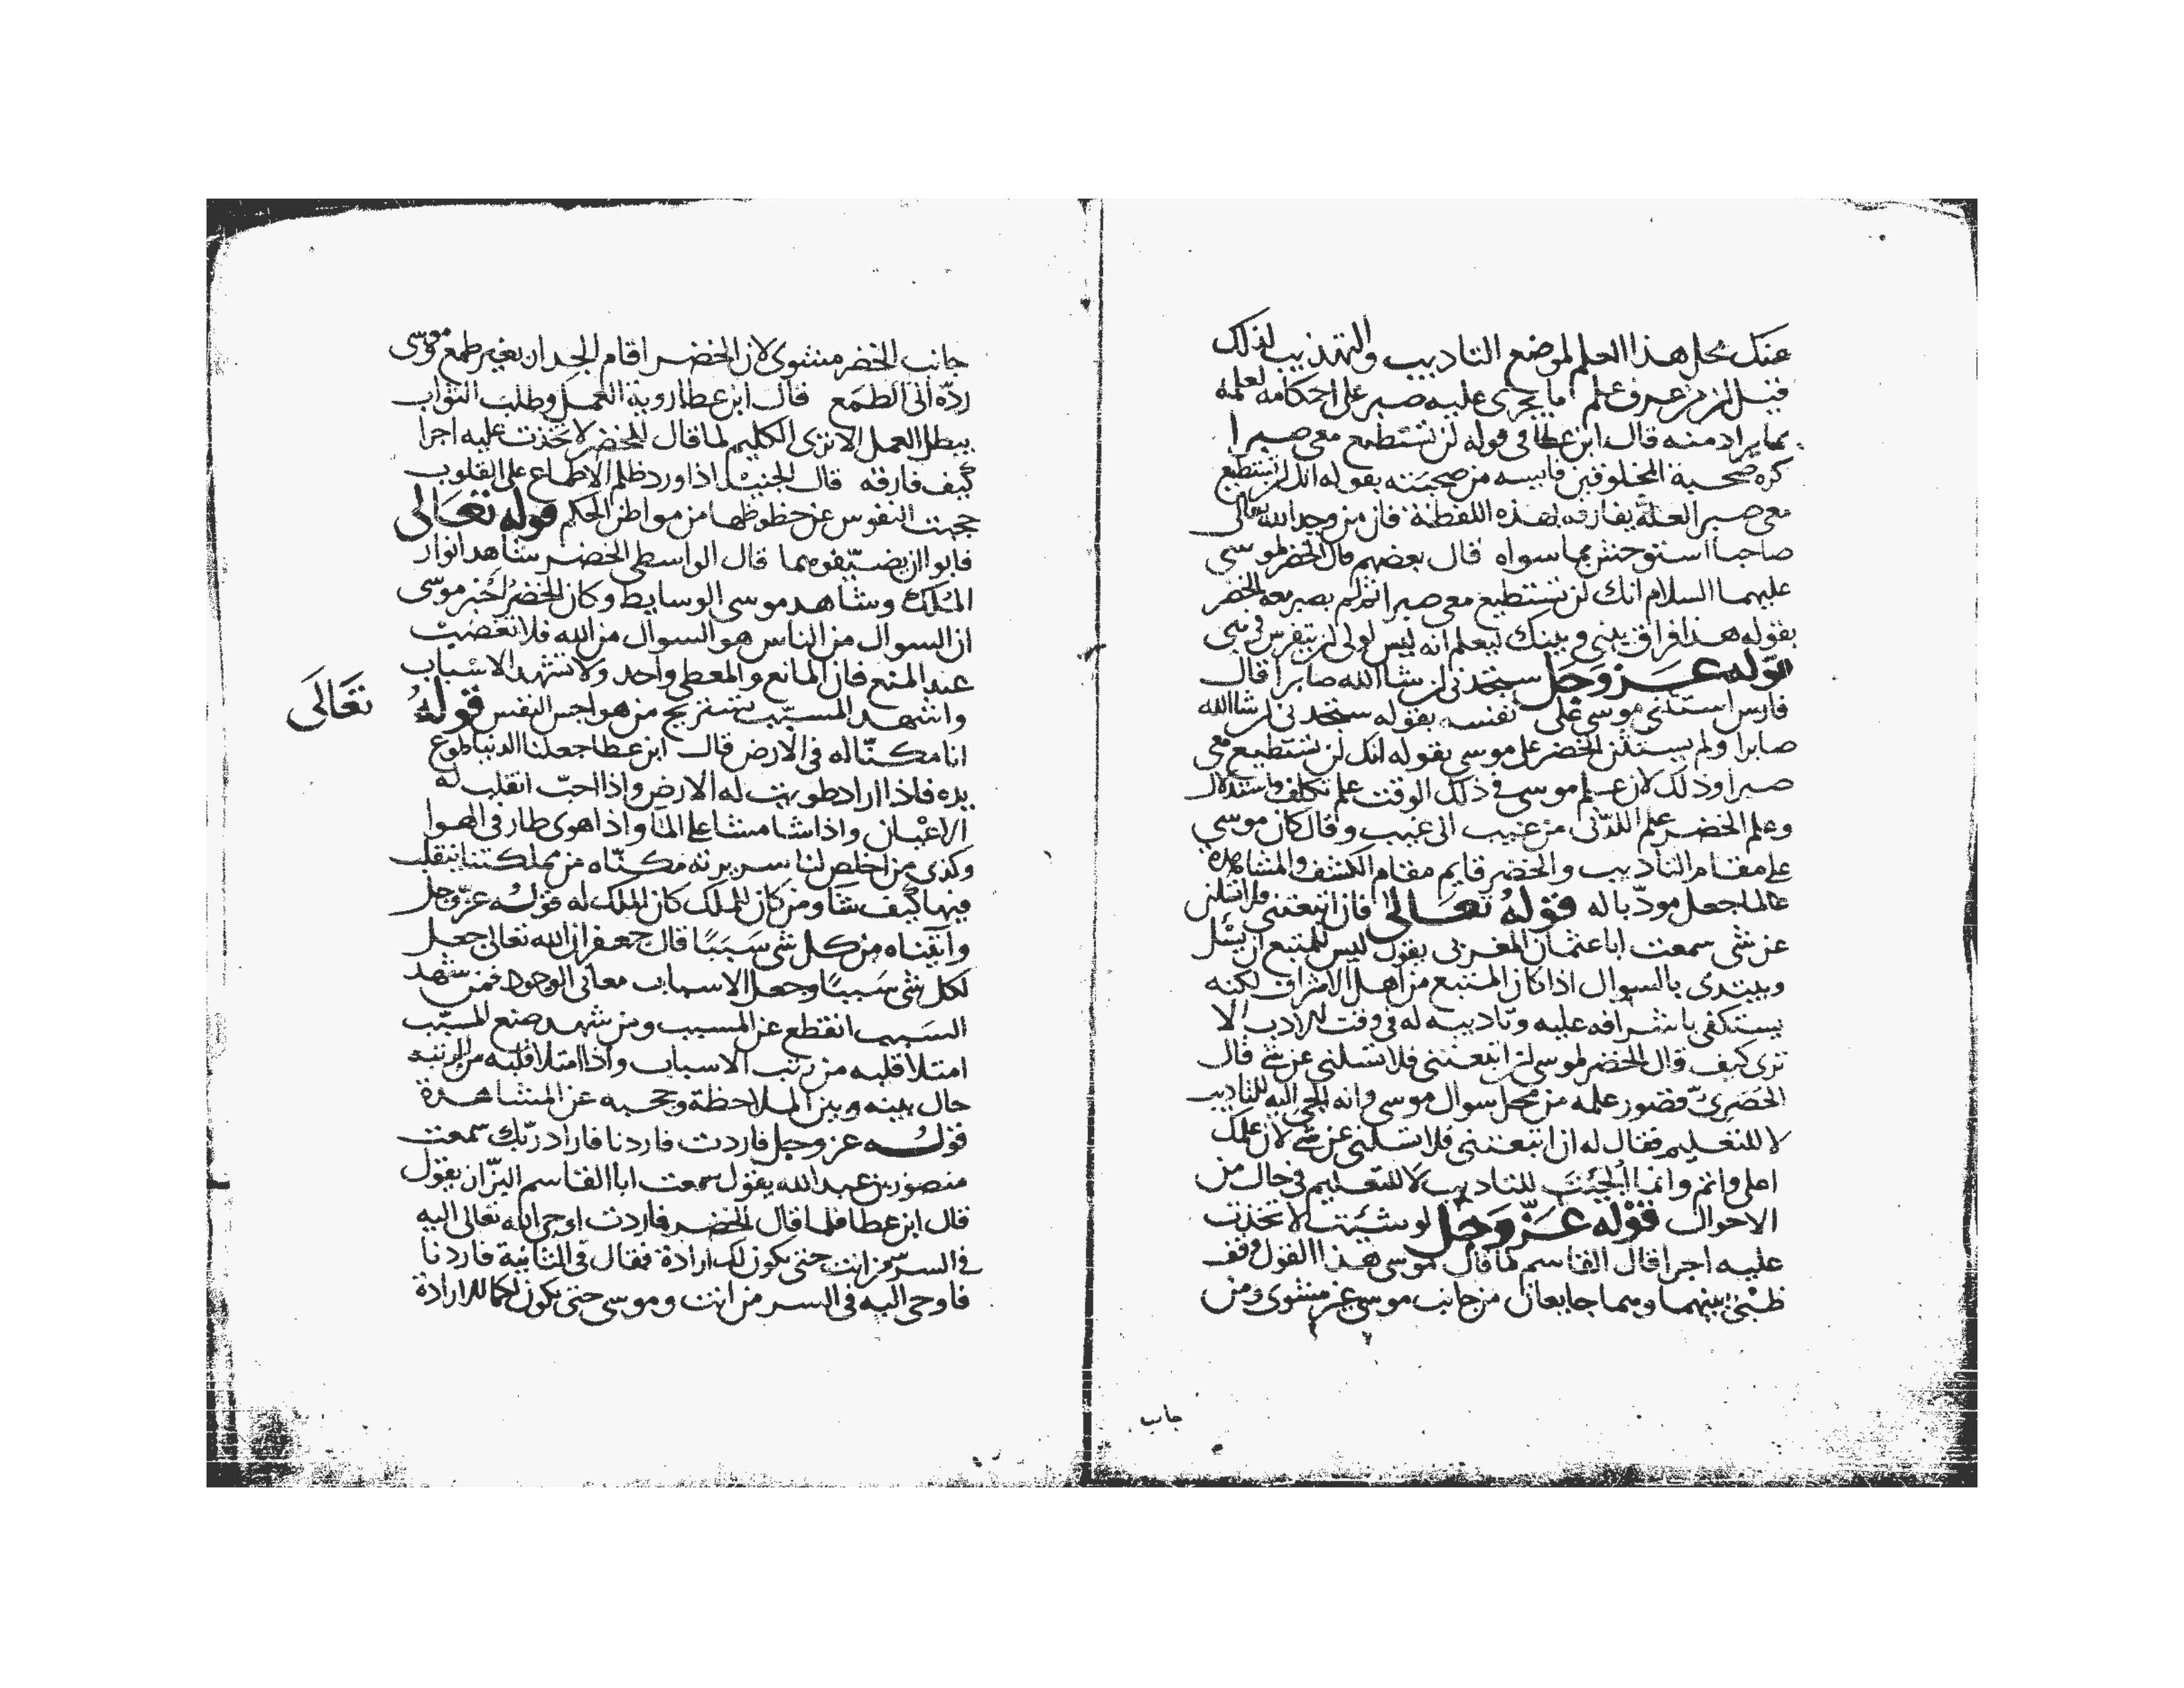 عنك محل هذا العلم لموضع التاديب والتهذيب لذلك
قيل ان من عرف علم ما يجرى عليه صبر على احكامه لعلمه
بما يراد منه قال ابن عطا فى قوله لن تستطيع معى صبرا
كره صحبة المخلوقين فايسه من صحبته بقوله انك لن تستطيع
معى صبرا لعله يفارقه بهذه اللفظة فان من وجد الله تعالى
صاحبا استوحش مما سواه قال بعضهم قال الخضر لموسى
عليهما السلام انك لن تستطيع معى صبرا ثم لم يصبر معه الخضر
بقوله هذا فراق بينى وبينك ليعلم انه ليس لولى ان يتفرس فى نبى
قوله عز وجل ستجدنى ان شا الله صابرا قال
فارس استثنى موسى على نفسه بقوله ستجدنى ان شا الله
صابرا ولم يستثن الخضر على موسى بقوله انك لن تستطيع معى
صبرا وذلك لان علم موسى فى ذلك الوقت علم تكلف واستدلال
وعلم الخضر علم اللدنى من غيب الى غيب وقال كان موسى
على مقام التاديب والخضر قايم مقام الكشف والمشاهدة
عالما جعل مودبا له قوله تعالى فان اتبعتنى فلا تسلنى
عن شى سمعت ابا عثمان المغربى يقول ليس للمتبع ان يسئل
ويبتدى بالسوال اذا كان المتبع من اهل الاشراف لكنه
يستكفى باشرافه عليه وتاديبه له فى وقت الادب الا
ترى كيف قال الخضر لموسى لئن اتبعتنى فلا تسلنى عن شى قال
الحصرى قصور علمه من محل سوال موسى وانه الجى اليه للتاديب
لا للتعليم فقال له ان اتبعتنى فلا تسلنى عن شى لان علمك
اعلى واتم وانما الجئت للتاديب لا للتعليم فى حال من
الاحوال قوله عز وجل لو شئت لاتخذت
عليه اجرا قال القاسم لما قال موسى هذا القول وقف
ظبى بينهما وهما جايعان من جانب موسى غير مشوى ومن
جانب
جانب الخضر مشوى لان الخضر اقام الجدار بغير طمع وموسى
رده الى الطمع قال ابن عطا روية العمل وطلب الثواب
يبطل العمل الا ترى الكليم لما قال للخضر لاتخذت عليه اجرا
كيف فارقه قال الجنيد اذا ورد ظلم الاطماع على القلوب
حجبت النفوس عن حظوظها من مواطن الحكم قوله تعالى
فابوا ان يضيفوهما قال الواسطى الخضر شاهد انوار
الملك وشاهد موسى الوسايط وكان الخضر اخبر موسى
ان السوال من الناس هو السوال من الله فلا تغضب
عند المنع فان المانع والمعطى واحد ولا تشهد الاسباب
واشهد المسبب تستريح من هواجس النفس قوله تعالى
انا مكنا له فى الارض قال ابن عطا جعلنا الدنيا طوع
يده فاذا اراد طويت له الارض واذا احب انقلب له
الاعيان واذا شا مشا على الما واذا هوى طار فى الهوا
وكذى من اخلص لنا سريرته مكناه من مملكتنا ينقلب
فيها كيف شا ومن كان للملك كان الملك له قوله عز وجل
وآتيناه من كل شى سببا قال جعفر ان الله تعالى جعل
لكل شى سببا وجعل الاسباب معانى الوجود فمن شهد
السبب انقطع عن المسبب ومن شهد صنع المسبب
امتلا قلبه من رتب الاسباب واذا امتلا قلبه من الرتبة
حال بينه وبين الملاحظة وحجبه عن المشاهدة
قوله عز وجل فاردت فاردنا فاراد ربك سمعت
منصور بن عبد الله يقول سمعت ابا القاسم البزان يقول
قال ابن عطا فلما قال الخضر فاردت اوحى الله تعالى اليه
فى السر من انت حتى تكون لك ارادة فقال فى الثانية فاردنا
فاوحى اليه فى السر من انت وموسى حتى تكون لكما الارادة